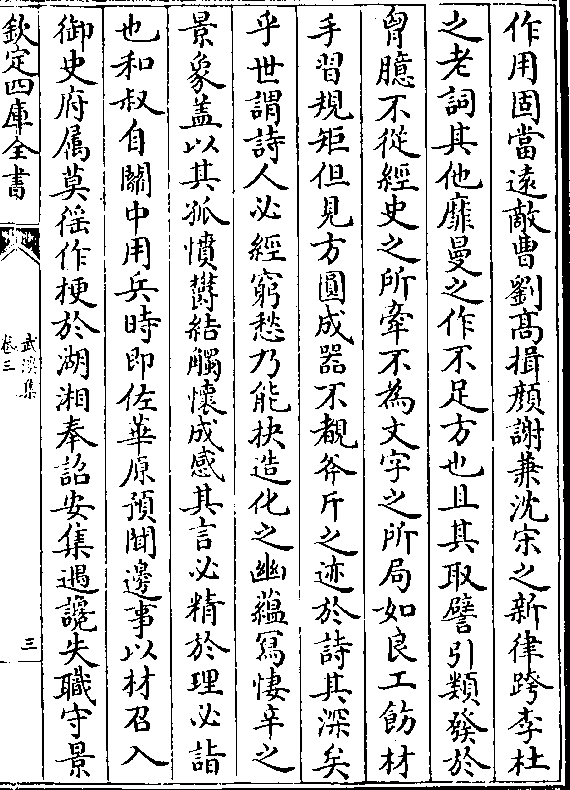 作用固當遠敵曹劉髙揖顔謝兼沈宋之新律跨李杜
之老詞其他靡曼之作不足方也且其取譬引類發於
胷臆不從經史之所牽不為文字之所局如良工飭材
手習規矩但見方圓成器不覩斧斤之迹於詩其深矣
乎世謂詩人必經窮愁乃能抉造化之幽藴寫悽辛之
景象蓋以其孤憤鬱結觸懷成感其言必精於理必詣
也和叔自關中用兵時即佐華原預聞邊事以材召入
御史府属莫徭作梗於湖湘奉詔安集遇讒失職守景
欽定四庫全書
武溪集
卷三
三